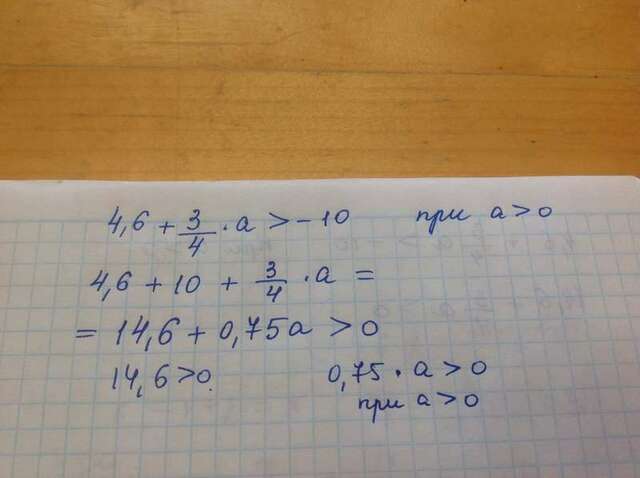 4,6 + 3/4 · a > -10 при a > 0
4,6 + 10 + 3/4 · a =
= 14,6 + 0,75a > 0
14,6 > 0. 0,75 · a > 0
при a > 0